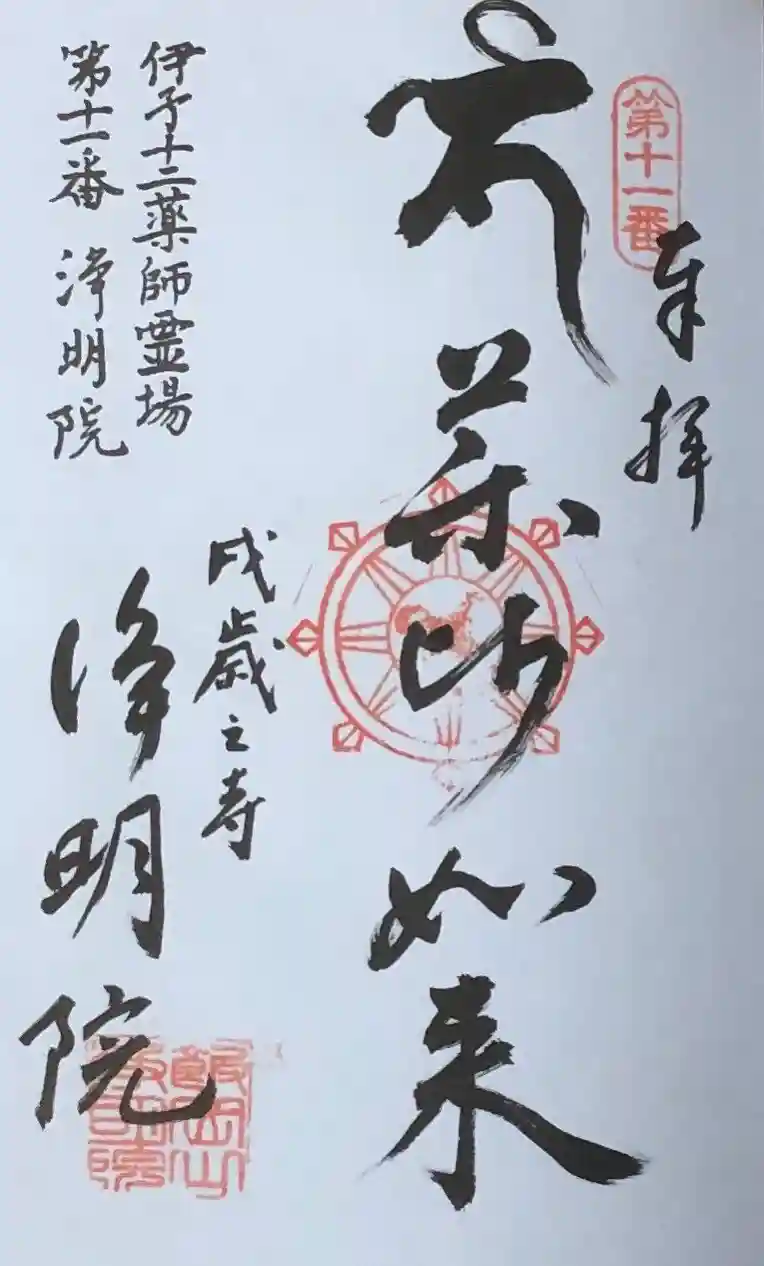 第十一番
奉拝
薬師如来
戌歳之寿
浄明院
伊予十二薬師霊場
第十一番 浄明院